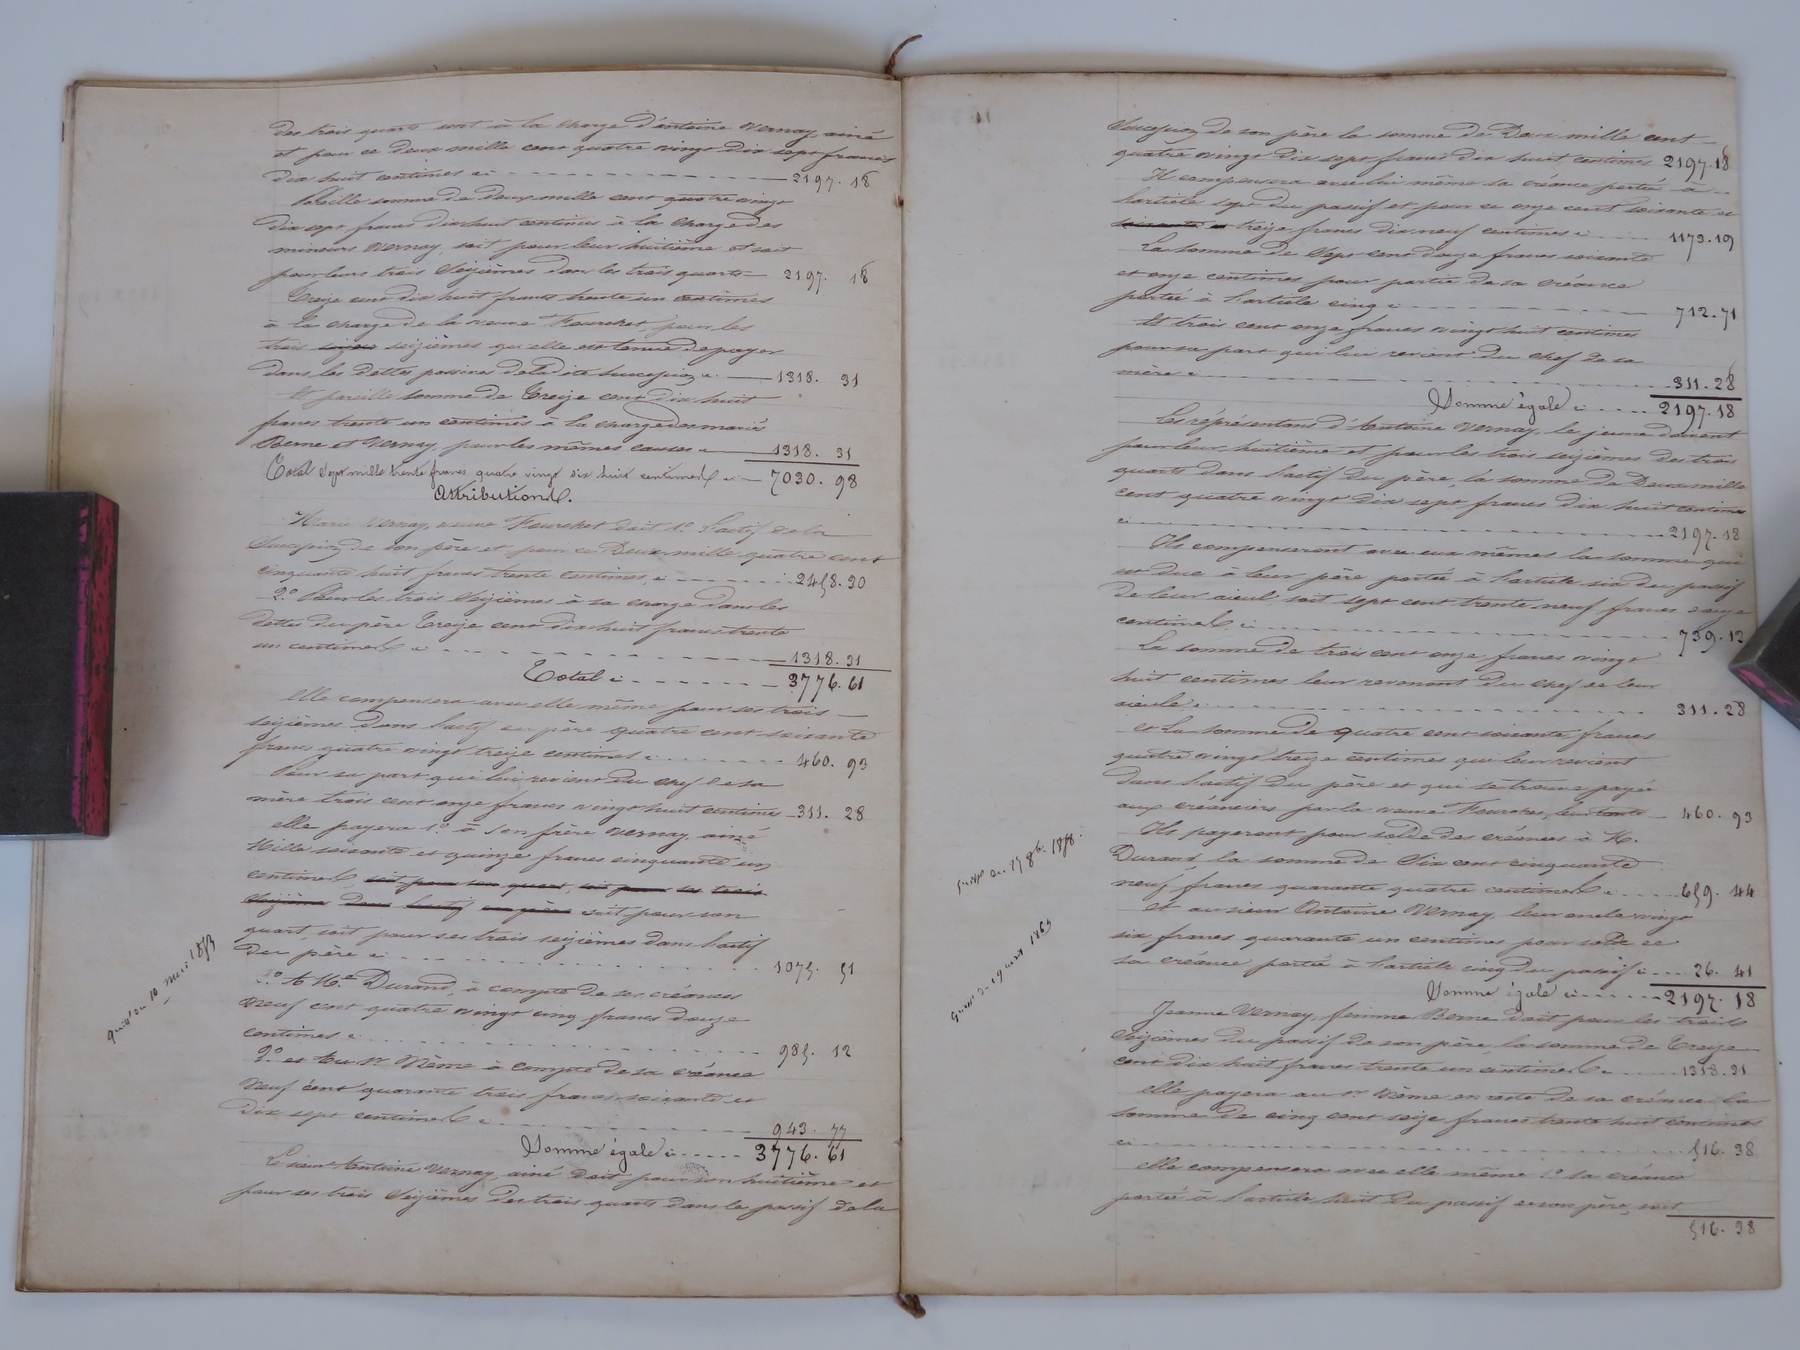 des trois quarts sont à la charge d'antoine Vernay, ainé
et pour ce deux mille cent quatre vingt dix sept francs
dix huit centimes ci 2197. 18
Pareille somme de deux mille cent quatre vingt
dix sept francs dix huit centimes à la charge des
mineurs Vernay, soit pour leur huitième et soit
pour leurs trois seizièmes dans les trois quarts 2197. 18
Treize cent dix huit francs trente un centimes
à la charge de la veuve Fourchet, pour les
trois seizièmes qu'elle est tenue de payer
dans les dettes passives de ladite succession ci 1318. 31
Et pareille somme de Treize cent dix huit
francs trente un centimes à la charge des mariés
Berne et Vernay, pour les mêmes causes ci 1318. 31
Total sept mille trente francs quatre vingt dix huit centimes ci 7030. 98
Attributions.
Marie Vernay, veuve Fourchet doit 1° l'actif de la
succession de son père et pour ce Deux mille quatre cent
cinquante huit francs trente centimes, ci 2458. 30
2° Pour les trois seizièmes à sa charge dans les
dettes du père Treize cent dix huit francs trente
un centimes ci 1318. 31
Total ci 3776. 61
elle compensera avec elle même pour ses trois
seizièmes dans l'actif du père quatre cent soixante
francs quatre vingt treize centimes ci 460. 93
Pour sa part qui lui revient du chef de sa
mère trois cent onze francs vingt huit centimes 311. 28
elle payera 1° à son frère Vernay, ainé
Mille soixante et quinze francs cinquante un
centimes, soit pour son quart, soit pour ses trois
seizièmes dans l'actif du père soit pour son
quart, soit pour ses trois seizièmes dans l'actif
du père ci 1075. 51
2° A Me Durand, à compte de ses créances
neuf cent quatre vingt cinq francs douze
centimes ci 985. 12
3° et au Sr Même à compte de sa créance
neuf cent quarante trois francs soixante et
dix sept centimes ci 943. 77
Somme égale ci 3776. 61
Le sieur Antoine Vernay, ainé doit pour son huitième et
pour ses trois seizièmes des trois quarts dans le passif de la
quitt du 10 mars 1873
succession de son père la somme de Deux mille cent
quatre vingt dix sept francs dix huit centimes 2197. 18
Il compensera avec lui même sa créance portée à
l'article sept du passif et pour ce onze cent soixante et
treize francs dix neuf centimes ci 1173. 19
La somme de sept cent douze francs soixante
et onze centimes pour partie de sa créance
portée à l'article cinq ci 712. 71
Et trois cent onze francs vingt huit centimes
pour sa part qui lui revient du chef de sa
mère ci 311. 28
Somme égale ci 2197. 18
Les représentans d'Antoine Vernay, le jeune doivent
pour leur huitième et pour les trois seizièmes des trois
quarts dans l'actif du père, la somme de Deux mille
cent quatre vingt dix sept francs dix huit centimes
ci 2197. 18
Ils compenseront avec eux mêmes la somme qui
est due à leur père portée à l'article six du passif
de leur aieul, soit sept cent trente neuf francs douze
centimes ci 739. 12
La somme de trois cent onze francs vingt
huit centimes leur revenant du chef de leur
aieule ci 311. 28
et la somme de quatre cent soixante francs
quatre vingt treize centimes qui leur revient
dans l'actif du père et qui se trouve payé
aux créanciers par la veuve Fourchet, leur tante 460. 93
Ils payeront pour solde des créances à M.
Durand, la somme de Six cent cinquante
neuf francs quarante quatre centimes ci 659. 44
et au sieur Antoine Vernay, leur oncle vingt
six francs quarante un centimes pour solde de
sa créance portée à l'article cinq du passif ci 26. 41
Somme égale ci 2197. 18
Jeanne Vernay, femme Berne doit pour les trois
seizièmes du passif de son père, la somme de Treize
cent dix huit francs trente un centimes ci 1318. 31
elle payera au Sr Même en reste de sa créance la
somme de cinq cent seize francs trente huit centimes
ci 516. 38
elle compensera avec elle même 1° sa créance
portée à l'article huit du passif de son père, soit
516. 38